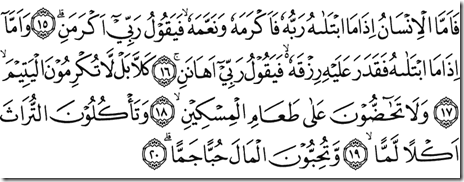 فَاَمَّا الْاِنْسَانُ اِذَا مَا ابْتَلٰىهُ رَبُّهٗ فَاَكْرَمَهٗ وَنَعَّمَهٗۙ فَيَقُوْلُ رَبِّيْٓ اَكْرَمَنِۗ ۝١٥ وَاَمَّآ
اِذَا مَا ابْتَلٰىهُ فَقَدَرَ عَلَيْهِ رِزْقَهٗۙ فَيَقُوْلُ رَبِّيْٓ اَهَانَنِۚ ۝١٦ كَلَّا بَلْ لَّا تُكْرِمُوْنَ الْيَتِيْمَۙ
۝١٧ وَلَا تَحٰۤضُّوْنَ عَلٰى طَعَامِ الْمِسْكِيْنِۙ ۝١٨ وَتَأْكُلُوْنَ التُّرَاثَ
اَكْلًا لَّمًّاۙ ۝١٩ وَّتُحِبُّوْنَ الْمَالَ حُبًّا جَمًّاۗ ۝٢٠